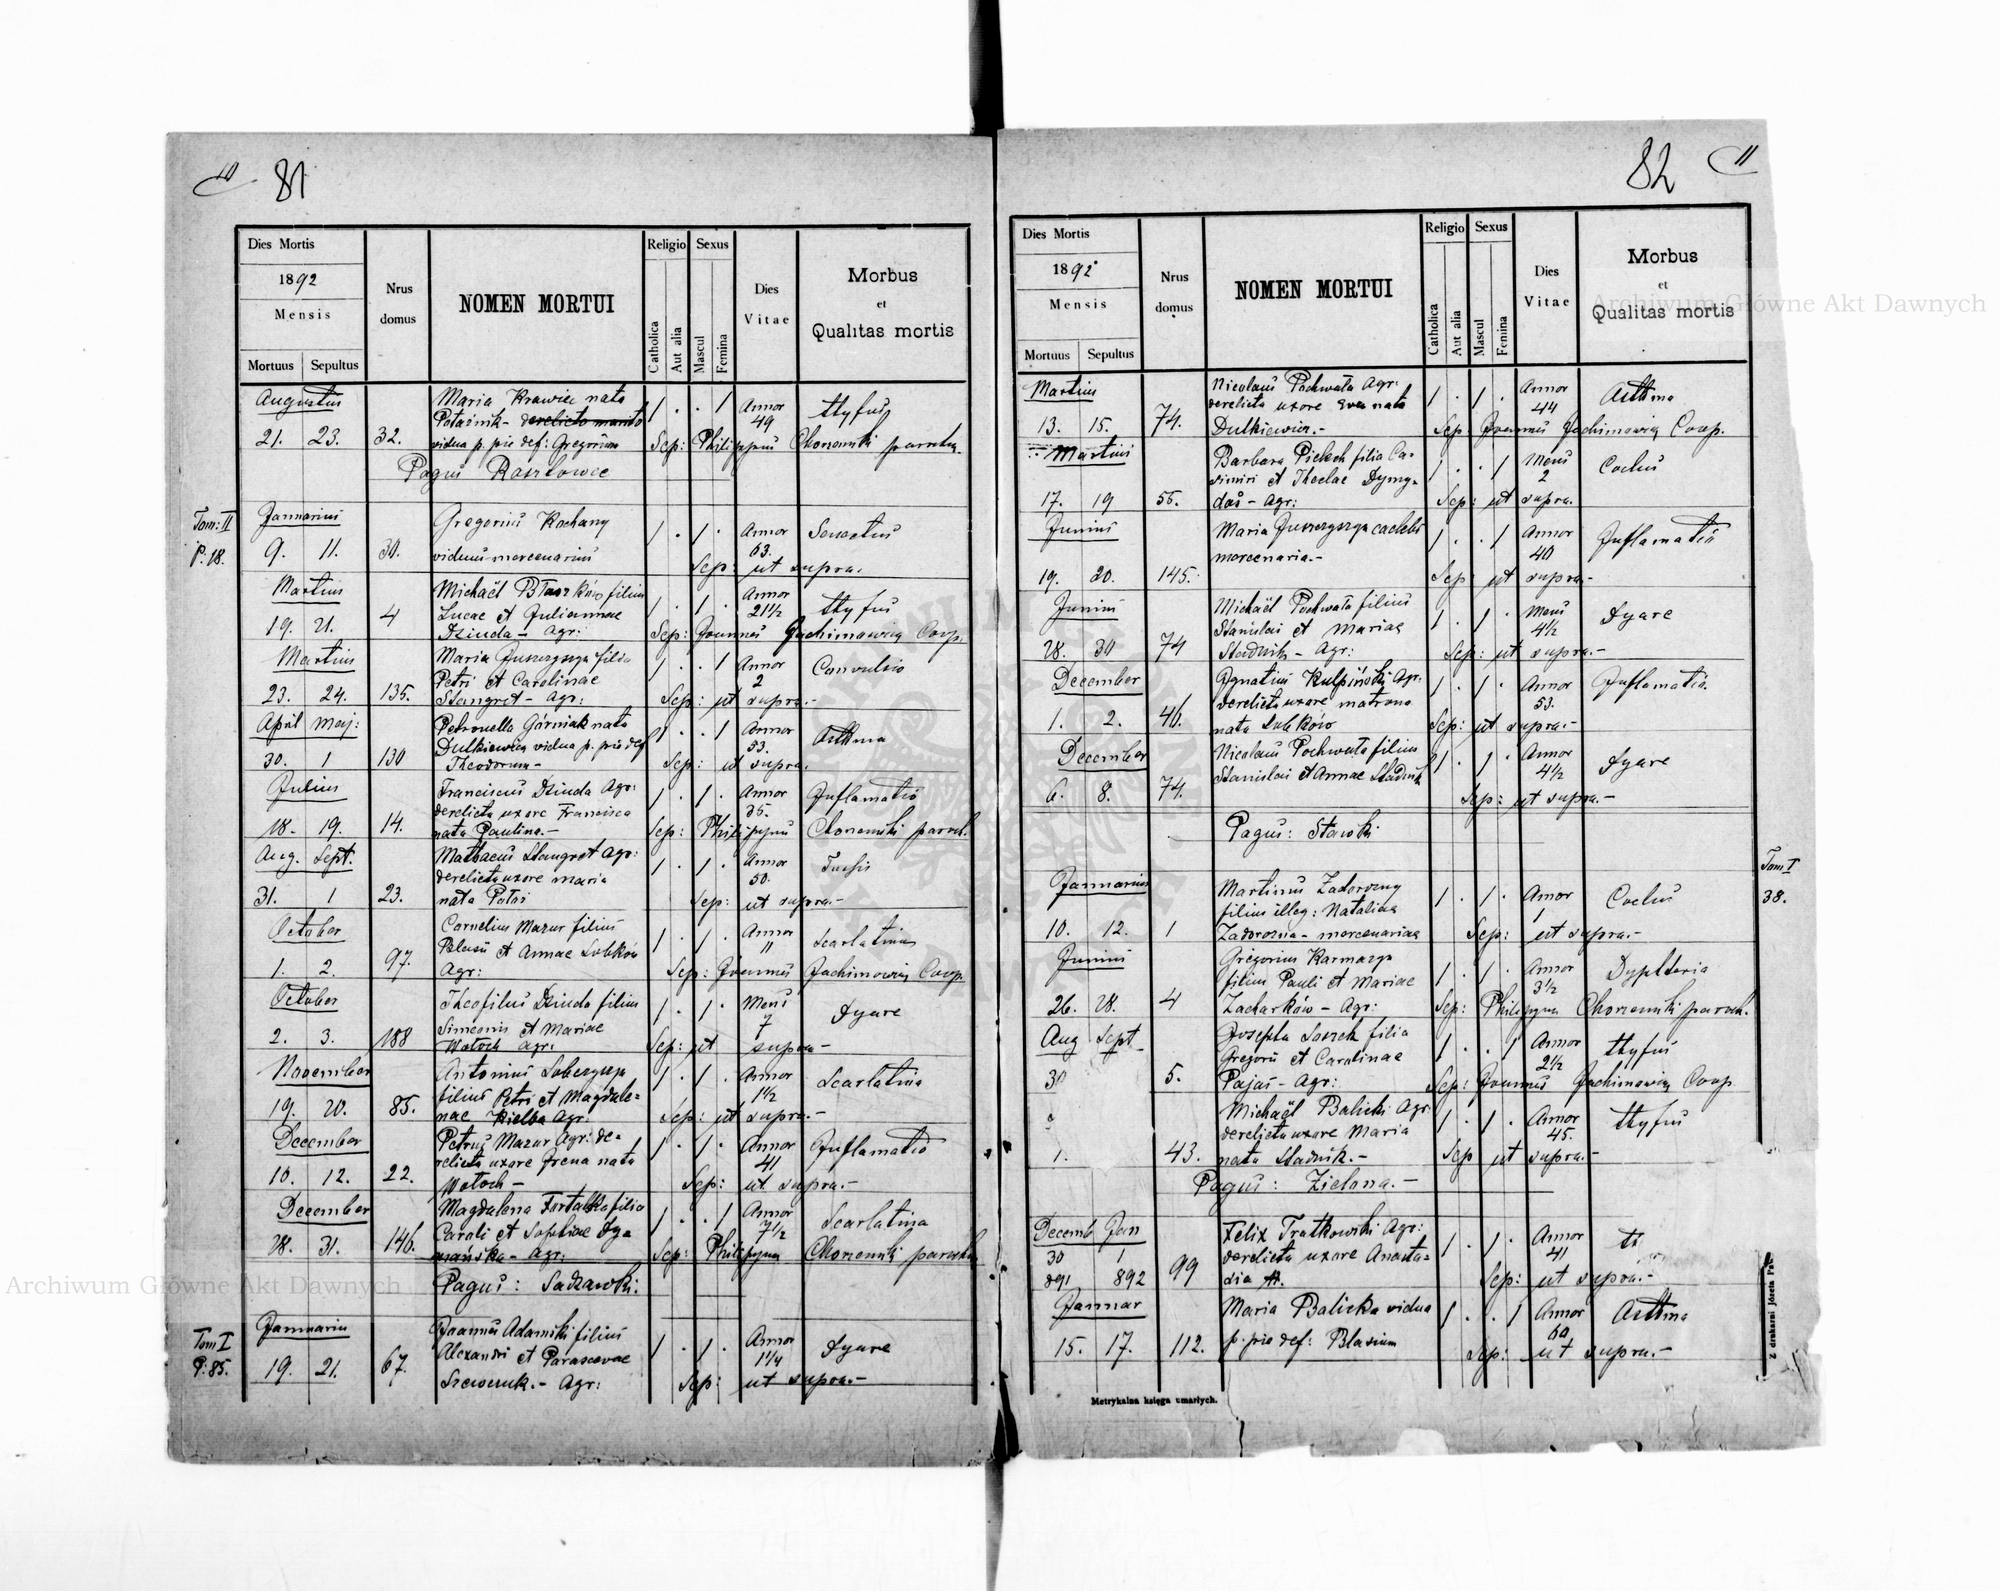 10 81
Dies Mortis
1892
Mensis
Mortuus Sepultus
Nrus domus
NOMEN MORTUI
Religio
Catholica
Aut alia
Sexus
Mascul
Femina
Dies Vitae
Morbus
et
Qualitas mortis
Augustus Maria Krawiec nata
Potaśnik - derelicto marito 1 . . 1 Annor 49 ttyfus
21. 23. 32. vidua p. pie def: Gregorium Sep: Philippus Chorzemski paroch.
Pagus Raszkowce
Tom: II P. 18.
Januarius Gregorius Kochany 1 . 1 . Annor 63. Senectus
9. 11. 30. viduus mercenarius Sep: ut supra.
Martius Michaël Błaszków filius
Lucae et Juliannae 1 . 1 . Annor 21½ ttyfus
19. 21. 4 Dziuda - Agr: Sep: Joannes Jachimowicz Coop.
Martius Maria Juszczyszyn filia
Petri et Carolinae 1 . . 1 Annor 2 Convulsio
23. 24. 135. Stangret - Agr: Sep: ut supra.-
April Maj: Petronella Górniak nata
Dulkiewicz vidua p. pie def 1 . . 1 Annor 53. Asttma
30. 1 130 Theodorum- Sep: ut supra.
Julius Franciscus Dziuda Agr:
derelicta uxore Francisca 1 . 1 . Annor 35. Inflamatio
18. 19. 14. nata Paulina.- Sep: Philippus Chorzemski paroch.
Aug. Sept. Mathaeus Stangret Agr:
derelicta uxore Maria 1 . 1 . Annor 50.
31. 1 23. nata Sep: ut supra.-
October Cornelius Mazur filius
Blasii et Annae Sobków 1 . 1 . Annor 11 Scarlatina
1. 2. 97. Agr: Sep: Joannes Jachimowicz Coop.
October Theofilus Dziuda filius
Simeonis et Mariae 1 . 1 . Mens 7 Dyare
2. 3. 188 Wołoch Agr: Sep: ut supra-
November Antonius
filius Petri et Magdale=
19. 20. 85. nae Kielba Agr. 1 . 1 . Annor 1½ Scarlatina
Sep: ut supra.-
December Petrus Mazur Agr: de=
relicta uxore Irena nata 1 . 1 . Annor 41 Inflamatio
10. 12. 22. Wołoch - Sep: ut supra.-
December Magdalena filia
Caroli et Sophiae 1 . . 1 Annor 7½ Scarlatina
28. 31. 146. - Agr: Sep: Philippus Chorzemski paroch.
Pagus: Sadzawki:
Tom I P. 85.
Januarius Joannes Adamski filius
Alexandri et Parascevae 1 . 1 . Annor 1¼ Dyare
19. 21. 67. Szewczuk.- Agr: Sep: ut supra.-
82 11
Dies Mortis
1892
Mensis
Mortuus Sepultus
Nrus domus
NOMEN MORTUI
Religio
Catholica
Aut alia
Sexus
Mascul
Femina
Dies Vitae
Morbus
et
Qualitas mortis
Martius Nicolaus Pochwała Agr:
derelicta uxore Eva nata 1 . 1 . Annor 44 Asttma
13. 15. 74. Dulkiewicz.- Sep: Joannes Jachimowicz Coop.
Martius Barbara filia Ca=
simiri et Theclae 1 . . 1 Mens 2 Coclus
17. 19 55. - Agr: Sep: ut supra.
Junius Maria Juszczyszyn caelebs
mercenaria.- 1 . . 1 Annor 40 Inflamatio
19. 20. 145. Sep: ut supra-
Junius Michaël Pochwała filius
Stanislai et Mariae 1 . 1 . Mens 4½ Dyare
28. 30 74 Stadnik - Agr: Sep: ut supra.-
December Ignatius Kulpiński Agr:
derelicta uxore matrona 1 . 1 . Annor 53. Inflamatio
1. 2. 46. nata Sobków Sep: ut supra.-
December Nicolaus Pochwała filius
Stanislai et Annae Stadnik 1 . 1 . Annor 4½ Dyare
6. 8. 74. Sep: ut supra.-
Pagus: Stawki
Tom I 38.
Januarius Martinus Zadorozny
filius illeg: Natalina 1 . 1 . Annor 1 Coclus
10. 12. 1 Zadorozna - mercenariae Sep: ut supra.-
Junius Gregorius Karmazyn
filius Pauli et Mariae 1 . 1 . Annor 3½ Dypthteria
26. 28. 4 Zacharków - Agr: Sep: Philippus Chorzemski paroch.
Aug Sept Josepha filia
Gregorii et Carolinae 1 . . 1 Annor 2½ ttyfus
30 5. Pajaś - Agr: Sep: Joannes Jachimowicz Coop
Michaël Balicki Agr:
derelicta uxore Maria 1 . 1 . Annor 45. ttyfus
1. 43. nata Stadnik.- Sep ut supra.-
Pagus: Zielona.-
Decemb Jan Felix Tratkowski Agr:
30 1 derelicta uxore Anasta= 1 . 1 . Annor 41
891 892 99 sia Sep: ut supra.-
Januar Maria Balicka vidua 1 . . 1 Annor 60. Asttma
15. 17. 112. p. pie def: Blasium Sep: ut supra.-
Metrykalna księga umarłych.
Z drukarni Józefa
Archiwum Główne Akt Dawnych
Archiwum Główne Akt Dawnych